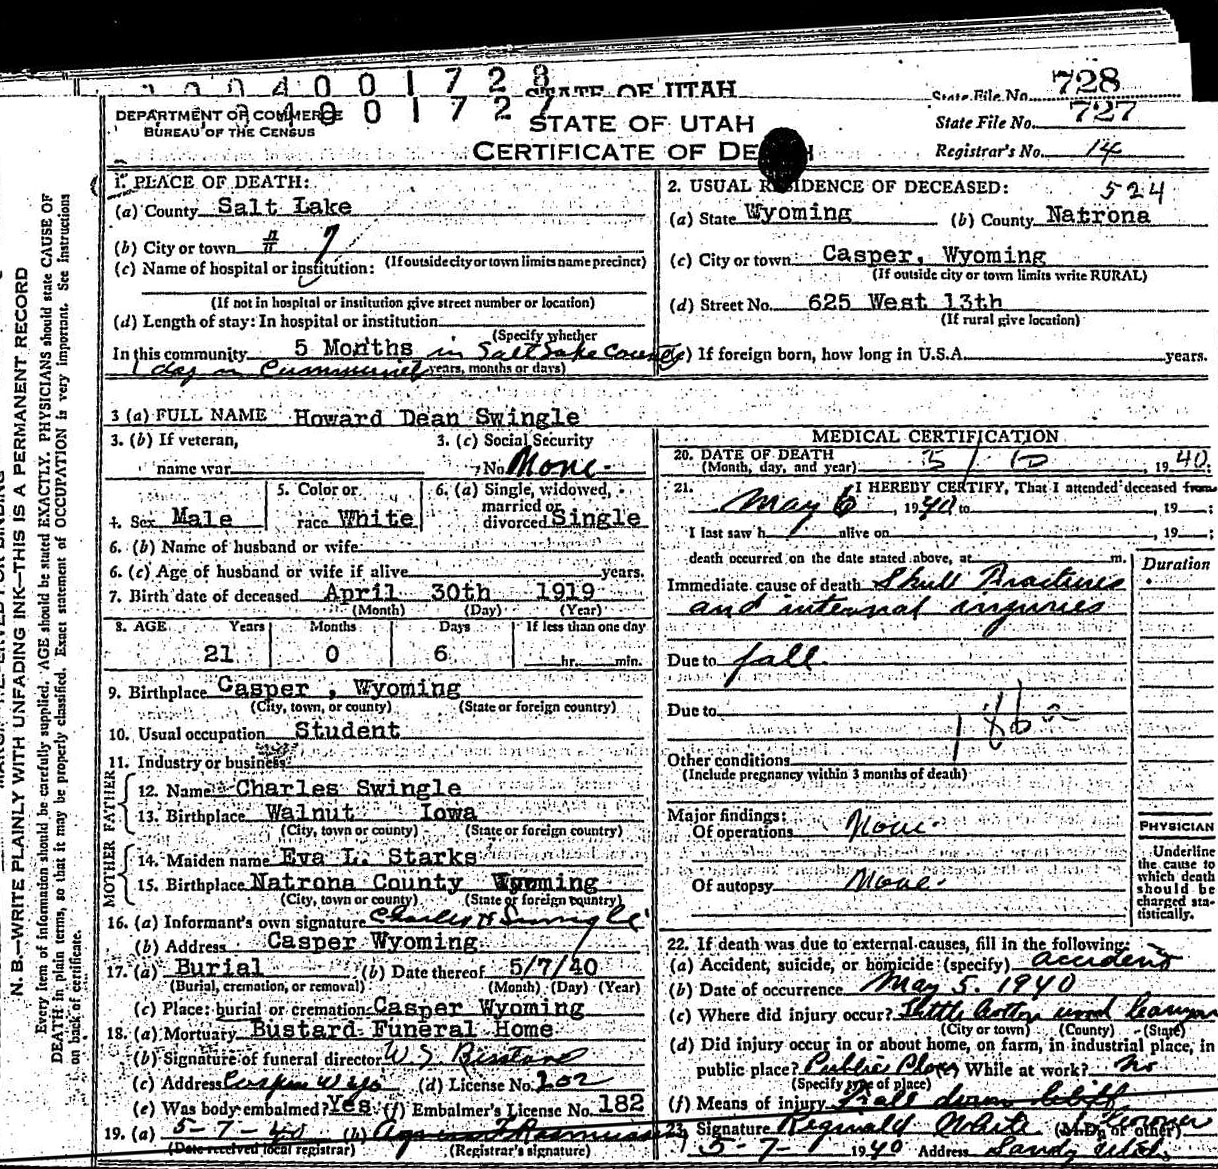 2 0 0 4 0 0 1 7 2 8 STATE OF UTAH State File No. 728
DEPARTMENT OF COMMERCE 4 0 0 1 7 2 7 STATE OF UTAH State File No. 727
BUREAU OF THE CENSUS
CERTIFICATE OF DEATH Registrar's No. 14
N. B.—WRITE PLAINLY WITH UNFADING INK—THIS IS A PERMANENT RECORD
Every item of information should be carefully supplied. AGE should be stated EXACTLY. PHYSICIANS should state CAUSE OF
DEATH in plain terms, so that it may be properly classified. Exact statement of OCCUPATION is very important. See instructions
on back of certificate.
1. PLACE OF DEATH:
(a) County Salt Lake
(b) City or town # 7
(If outside city or town limits name precinct)
(c) Name of hospital or institution:
(If not in hospital or institution give street number or location)
(d) Length of stay: In hospital or institution
(Specify whether
In this community 5 Months in Salt Lake County
1 day in years, months or days)
2. USUAL RESIDENCE OF DECEASED: 524
(a) State Wyoming (b) County Natrona
(c) City or town Casper, Wyoming
(If outside city or town limits write RURAL)
(d) Street No. 625 West 13th
(If rural give location)
(e) If foreign born, how long in U.S.A. years.
3 (a) FULL NAME Howard Dean Swingle
3. (b) If veteran, 3. (c) Social Security
name war No. None.
4. Sex Male 5. Color or race White 6. (a) Single, widowed, married or divorced Single
6. (b) Name of husband or wife
6. (c) Age of husband or wife if alive years.
7. Birth date of deceased April 30th 1919
(Month) (Day) (Year)
8. AGE Years Months Days If less than one day
21 0 6 hr. min.
9. Birthplace Casper, Wyoming
(City, town, or county) (State or foreign country)
10. Usual occupation Student
11. Industry or business
FATHER
12. Name Charles Swingle
13. Birthplace Walnut Iowa
(City, town or county) (State or foreign country)
MOTHER
14. Maiden name Eva L. Starks
15. Birthplace Natrona County Wyoming
(City, town or county) (State or foreign country)
16. (a) Informant's own signature Charles H Swingle
(b) Address Casper Wyoming
17. (a) Burial (b) Date thereof 5/7/40
(Burial, cremation, or removal) (Month) (Day) (Year)
(c) Place: burial or cremation Casper Wyoming
18. (a) Mortuary Bustard Funeral Home
(b) Signature of funeral director W S Bustard
(c) Address Casper Wyo (d) License No. 102
(e) Was body embalmed? Yes (f) Embalmer's License No. 182
19. (a) 5-7-40 (b) Agnes F Rasmussen
(Date received local registrar) (Registrar's signature)
MEDICAL CERTIFICATION
20. DATE OF DEATH
(Month, day, and year) 5 / , 19 40;
21. I HEREBY CERTIFY, That I attended deceased from
May 6, 1940 to , 19 ;
I last saw h alive on , 19 ;
death occurred on the date stated above, at m. Duration
Immediate cause of death Skull Fractures
and internal injuries
Due to fall
Due to
186
Other conditions
(Include pregnancy within 3 months of death)
Major findings:
Of operations None.
Of autopsy None.
PHYSICIAN
Underline
the cause to
which death
should be
charged sta-
tistically.
22. If death was due to external causes, fill in the following:
(a) Accident, suicide, or homicide (specify) accident
(b) Date of occurrence May 5, 1940
(c) Where did injury occur? Little Cottonwood Canyon
(City or town) (County) (State)
(d) Did injury occur in or about home, on farm, in industrial place, in
public place? Public Place While at work? No
(Specify type of place)
(f) Means of injury Fall down cliff
23. Signature Reginald White Coroner
(M.D. or other)
5-7- 1940 Address Sandy Utah